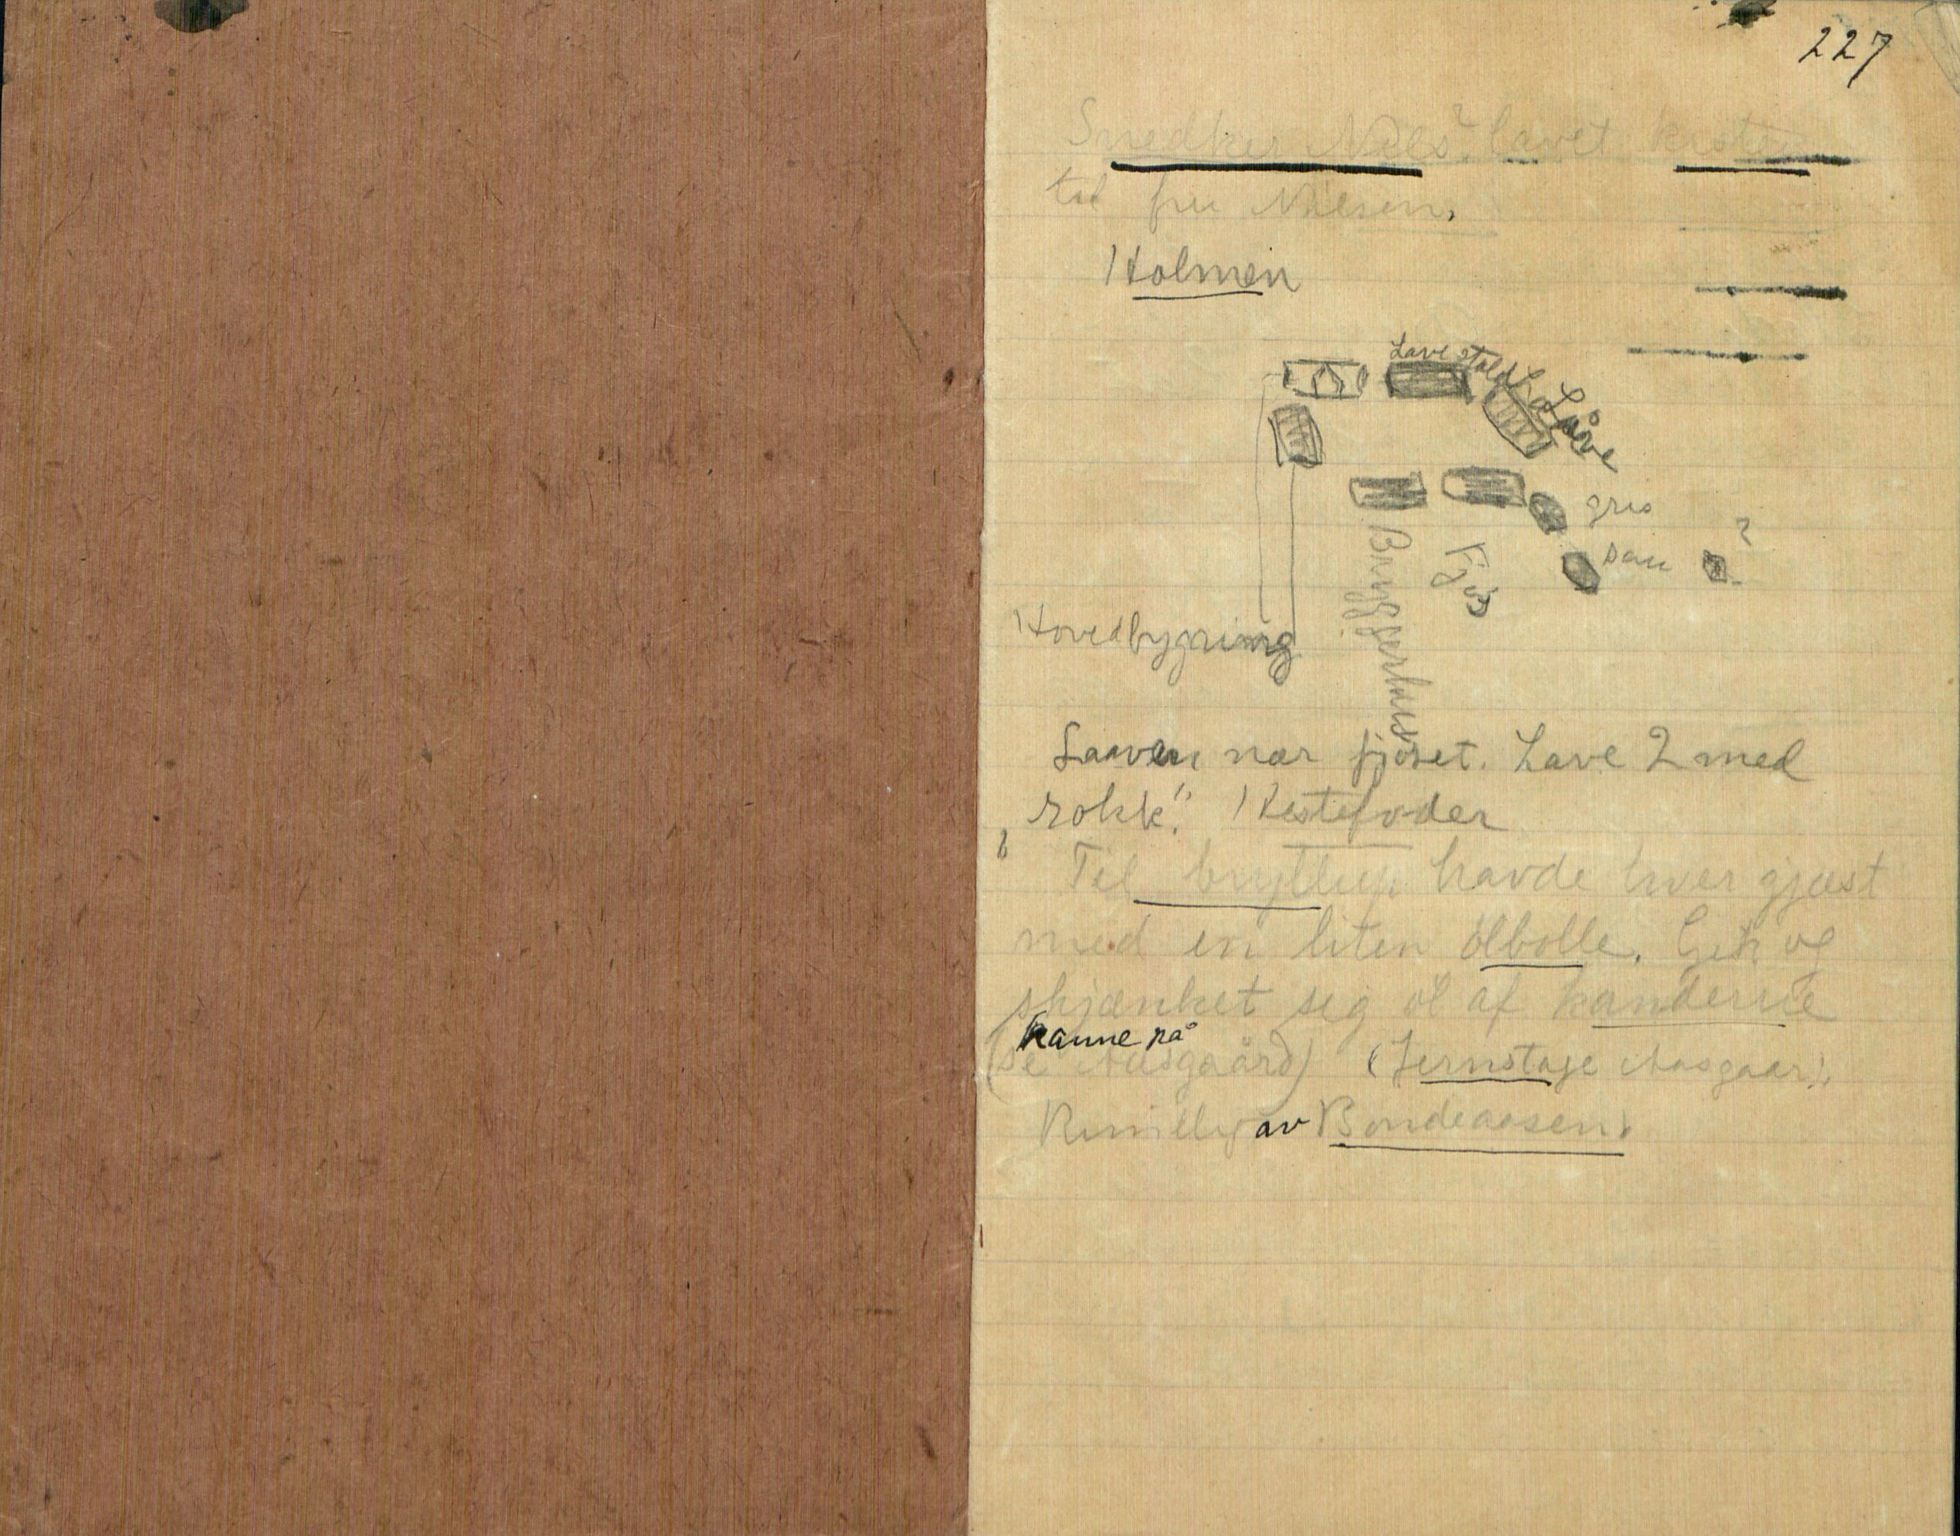 227
Snedker Nils? lavet kisten
til fru Nilsen.
Holmen
Lave stald
Låve
gris
sau
?
Fjøs
Bryggerhus
Hovedbygning
Laaven nær fjøset. Lave 2 med
rokk". Hestefoder
Til bryllup havde hver gjæst
med en liten ølbolle. Gik og
skjænket seg øl af kanderne
kanne på
(se Aasgaård) (Jernstage Aasgaar).
av Bondeaasen.